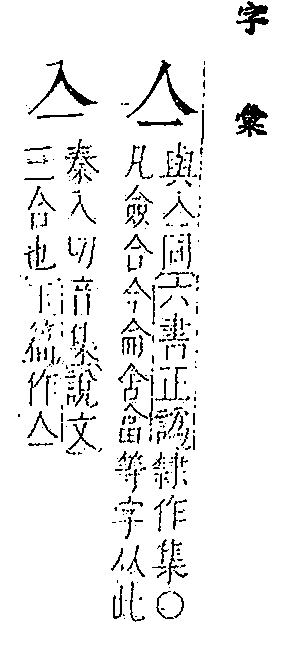 字彙
亼
與亼同六書正譌隸作集〇
凡僉合今侖舍畣等字从此
亼
秦入切音集說文
三合也玉篇作亼